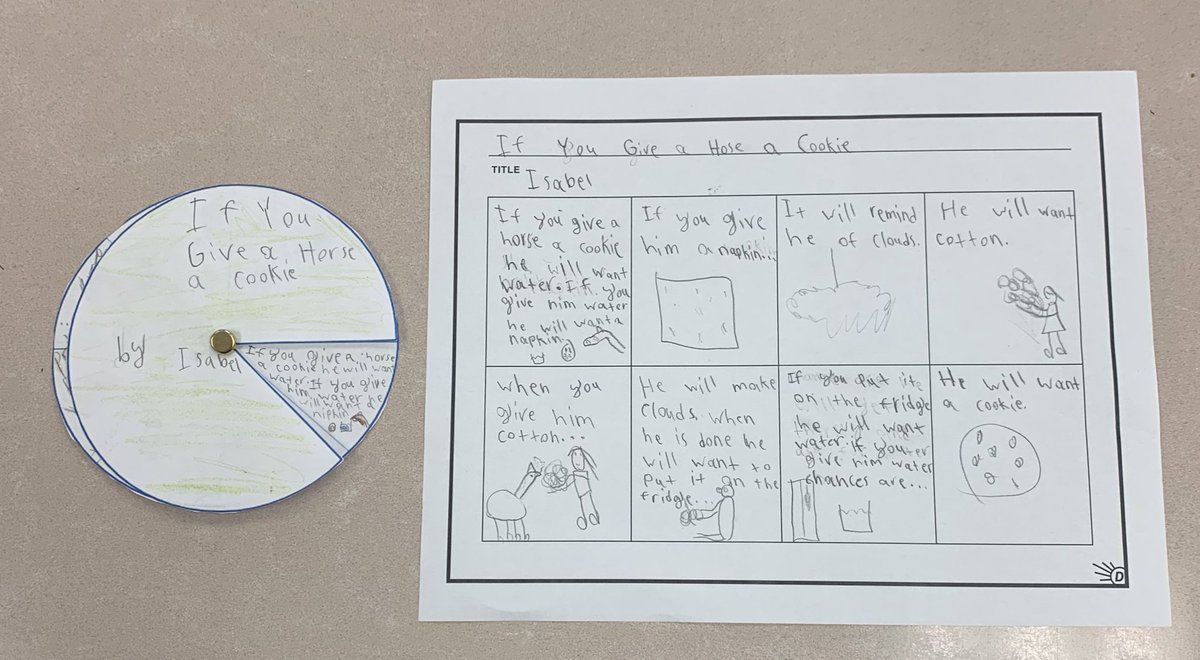 If You
Give a Horse
a cookie
by Isabel
If you give a horse
a cookie he will want
water. If you give
him water he
will want a
nipkin
If You Give a Hose a Cookie
TITLE
Isabel
If you give a
horse a cookie
he will want
water. If you
give him water
he will want a
napkin.
If you give
him a napkin...
It will remind
he of clouds.
He will want
cotton.
when you
give him
cotton...
He will make
clouds. when
he is done he
will want to
put it on the
fridge...
If you put it
on the fridge
he will want
water. if you
give him water
chances are...
He will want
a cookie.
D